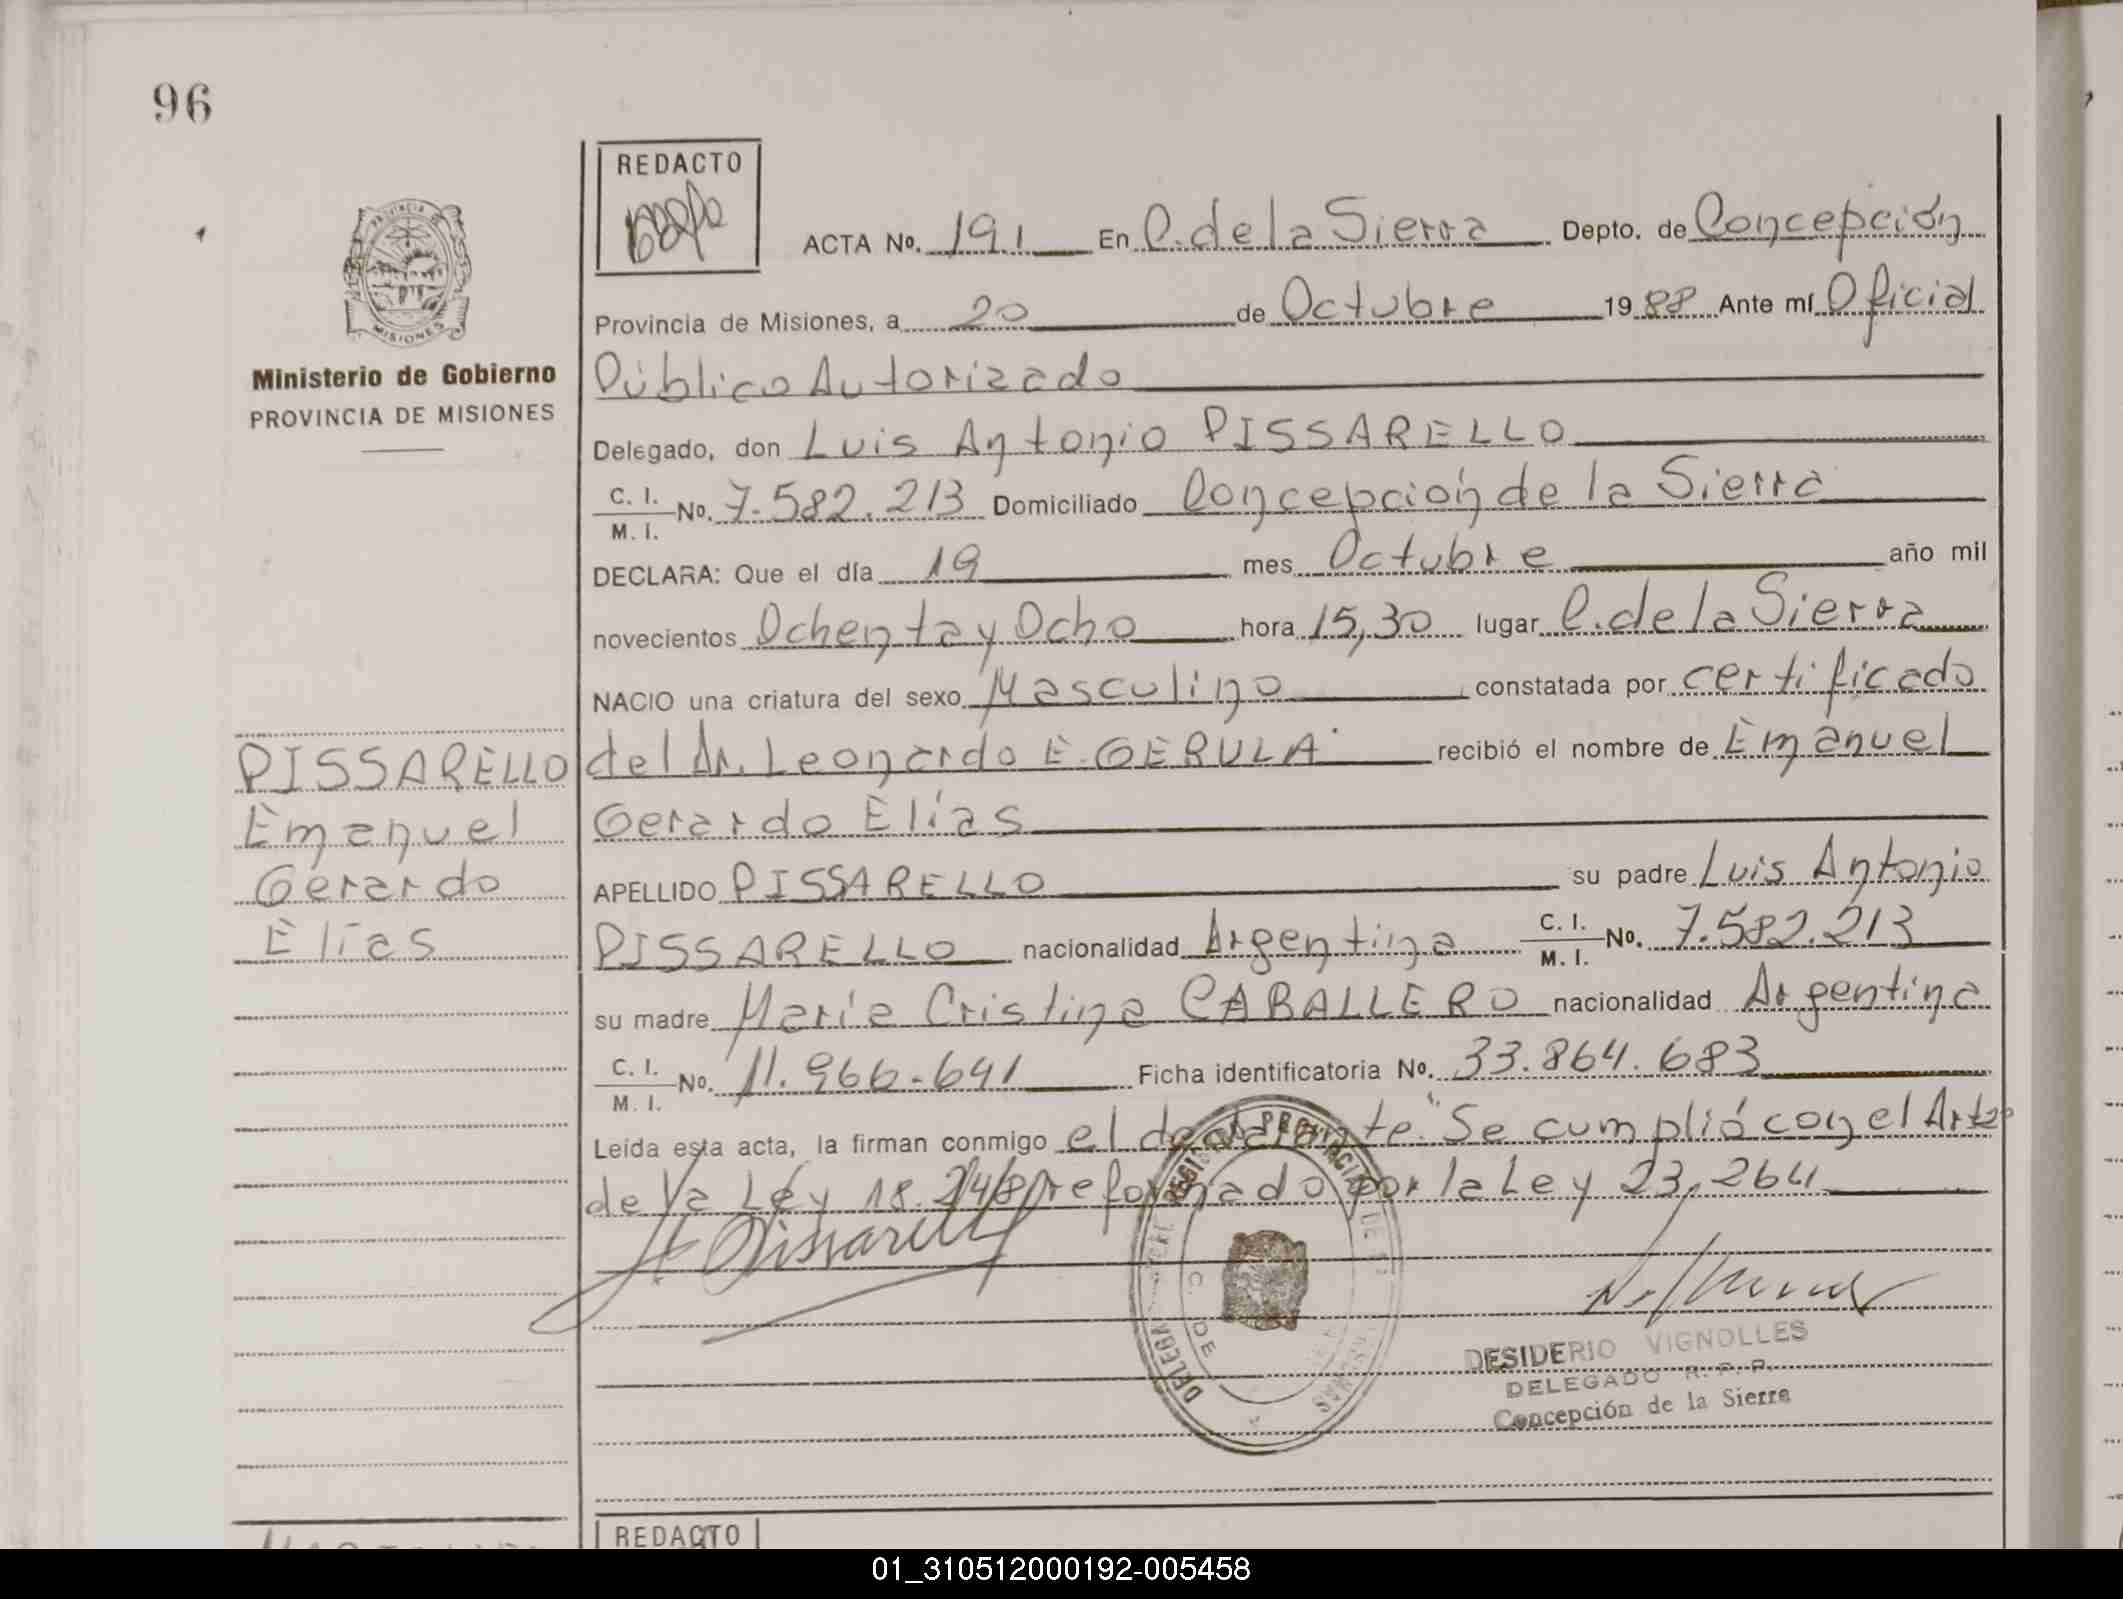 96
REDACTO
ACTA No. 191 En C. de la Sierra Depto. de Concepción
PROVINCIA DE MISIONES
Provincia de Misiones, a 20 de Octubre 1988 Ante mí Oficial
Ministerio de Gobierno
PROVINCIA DE MISIONES
Público Autorizado
Delegado, don Luis Antonio PISSARELLO
C. I.
M. I. No. 7.582.213 Domiciliado Concepción de la Sierra
DECLARA: Que el día 19 mes Octubre año mil
novecientos Ochenta y Ocho hora 15,30 lugar C. de la Sierra
NACIO una criatura del sexo Masculino constatada por certificado
PISSARELLO
Emanuel
Gerardo
Elías
del Dr. Leonardo E. GERULA recibió el nombre de Emanuel
Gerardo Elías
APELLIDO PISSARELLO su padre Luis Antonio
PISSARELLO nacionalidad Argentina C. I. M. I. No. 7.582.213
su madre María Cristina CABALLERO nacionalidad Argentina
C. I.
M. I. No. 11.966.641 Ficha identificatoria No. 33.864.683
Leída esta acta, la firman conmigo el declarante. "Se cumplió con el Art 2º
de la Ley 18.248 reformado por la Ley 23.264
Pissarello
DESIDERIO VIGNOLLES
DELEGADO R. P. P.
Concepción de la Sierra
REDACTO
01_310512000192-005458